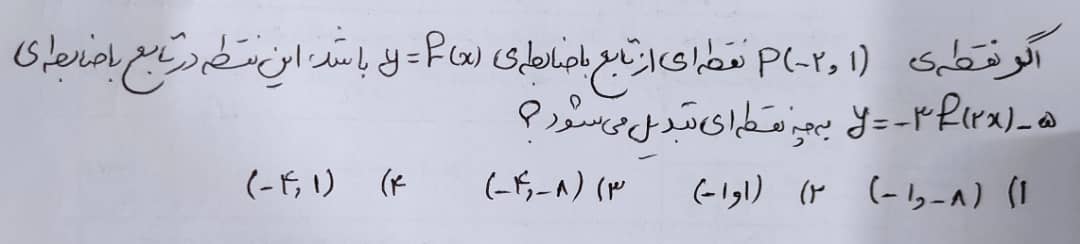 اگر نقطه‌ی P(-۲, ۱) نقطه‌ای از تابع با ضابطه‌ی y=f(x) باشد، این نقطه در تابع با ضابطه‌ی
y=-۳f(۲x)-۵ به چه نقطه‌ای تبدیل می‌شود؟
۱) (-۱,-۸) ۲) (-۱,۱) ۳) (-۴,-۸) ۴) (-۴,۱)